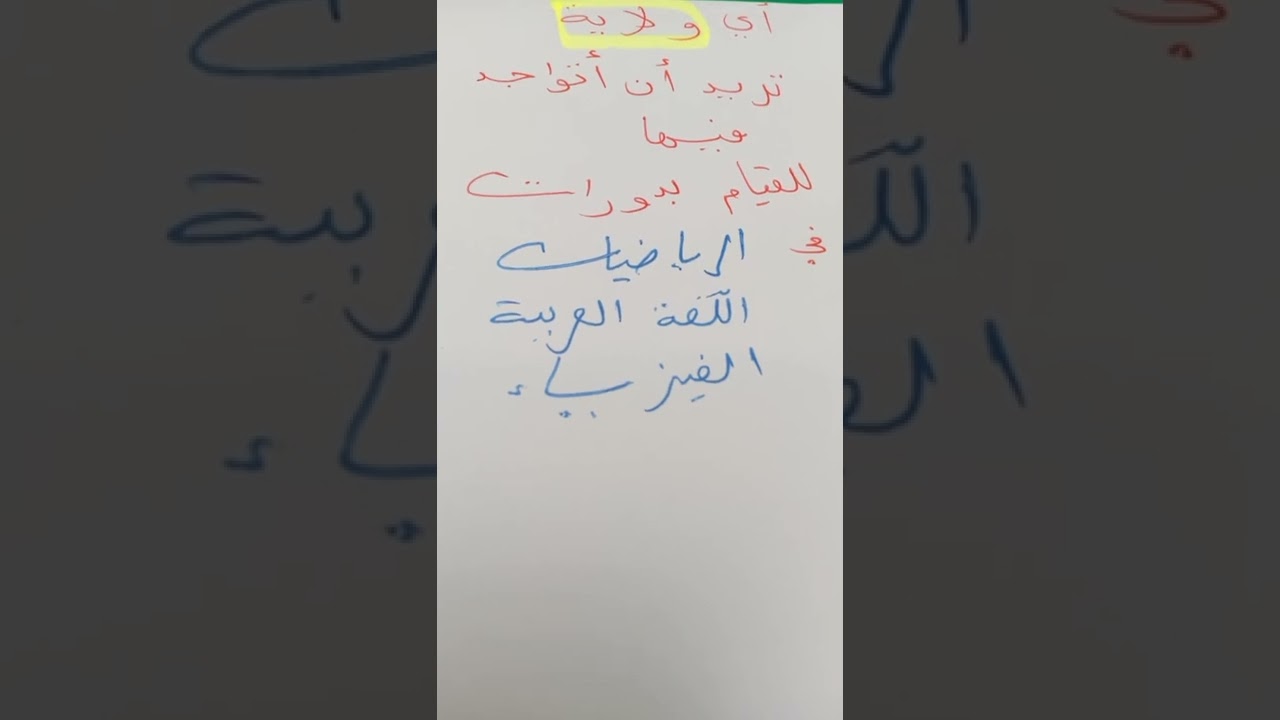 أي ولاية
تريد أن أتواجد
فيها
للقيام بدورات
في الرياضيات
اللّغة العربية
الفيزياء